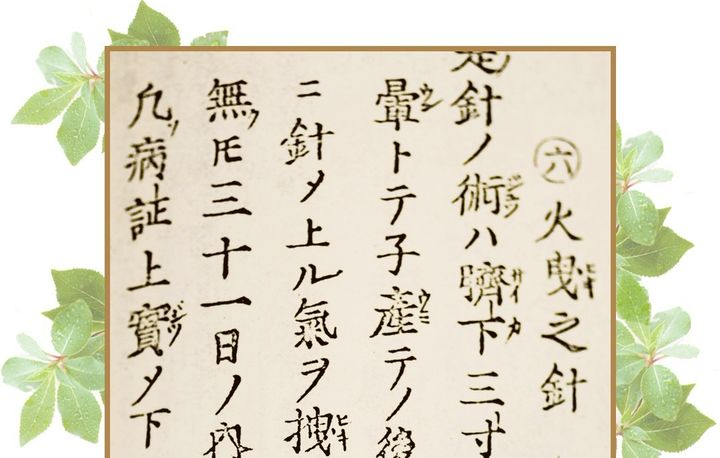 ㊅火曳之針
是針ノ術ハ臍下三寸
暈トテ子産テノ後
ニ針メ上ル氣ヲ拽
無𪜈三十一日ノ内
凡病証上實メ下